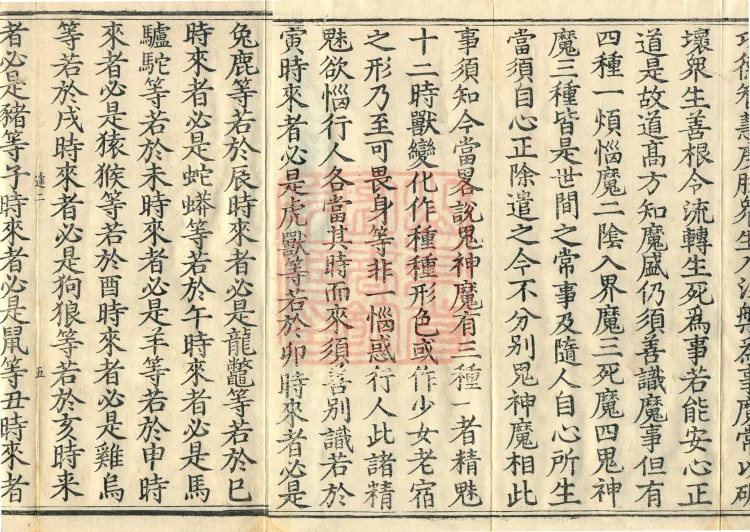 功德智慧度脫眾生入涅槃為事魔常以破
壞眾生善根令流轉生死為事若能安心正
道是故道髙方知魔盛仍須善識魔事但有
四種一煩惱魔二陰入界魔三死魔四鬼神
魔三種皆是世間之常事及隨人自心所生
當須自心正除遣之今不分別鬼神魔相此
事須知今當畧說鬼神魔有三種一者精魅
十二時獸變化作種種形色或作少女老宿
之形乃至可畏身等非一惱惑行人此諸精
魅欲惱行人各當其時而來須善別識若於
寅時來者必是虎獸等若於卯時來者必是
兔鹿等若於辰時來者必是龍鼈等若於巳
時來者必是蛇蟒等若於午時來者必是馬
驢駝等若於未時來者必是羊等若於申時
來者必是猿猴等若於酉時來者必是雞烏
等若於戌時來者必是狗狼等若於亥時来
逹二 五
者必是豬等子時來者必是鼠等丑時來者